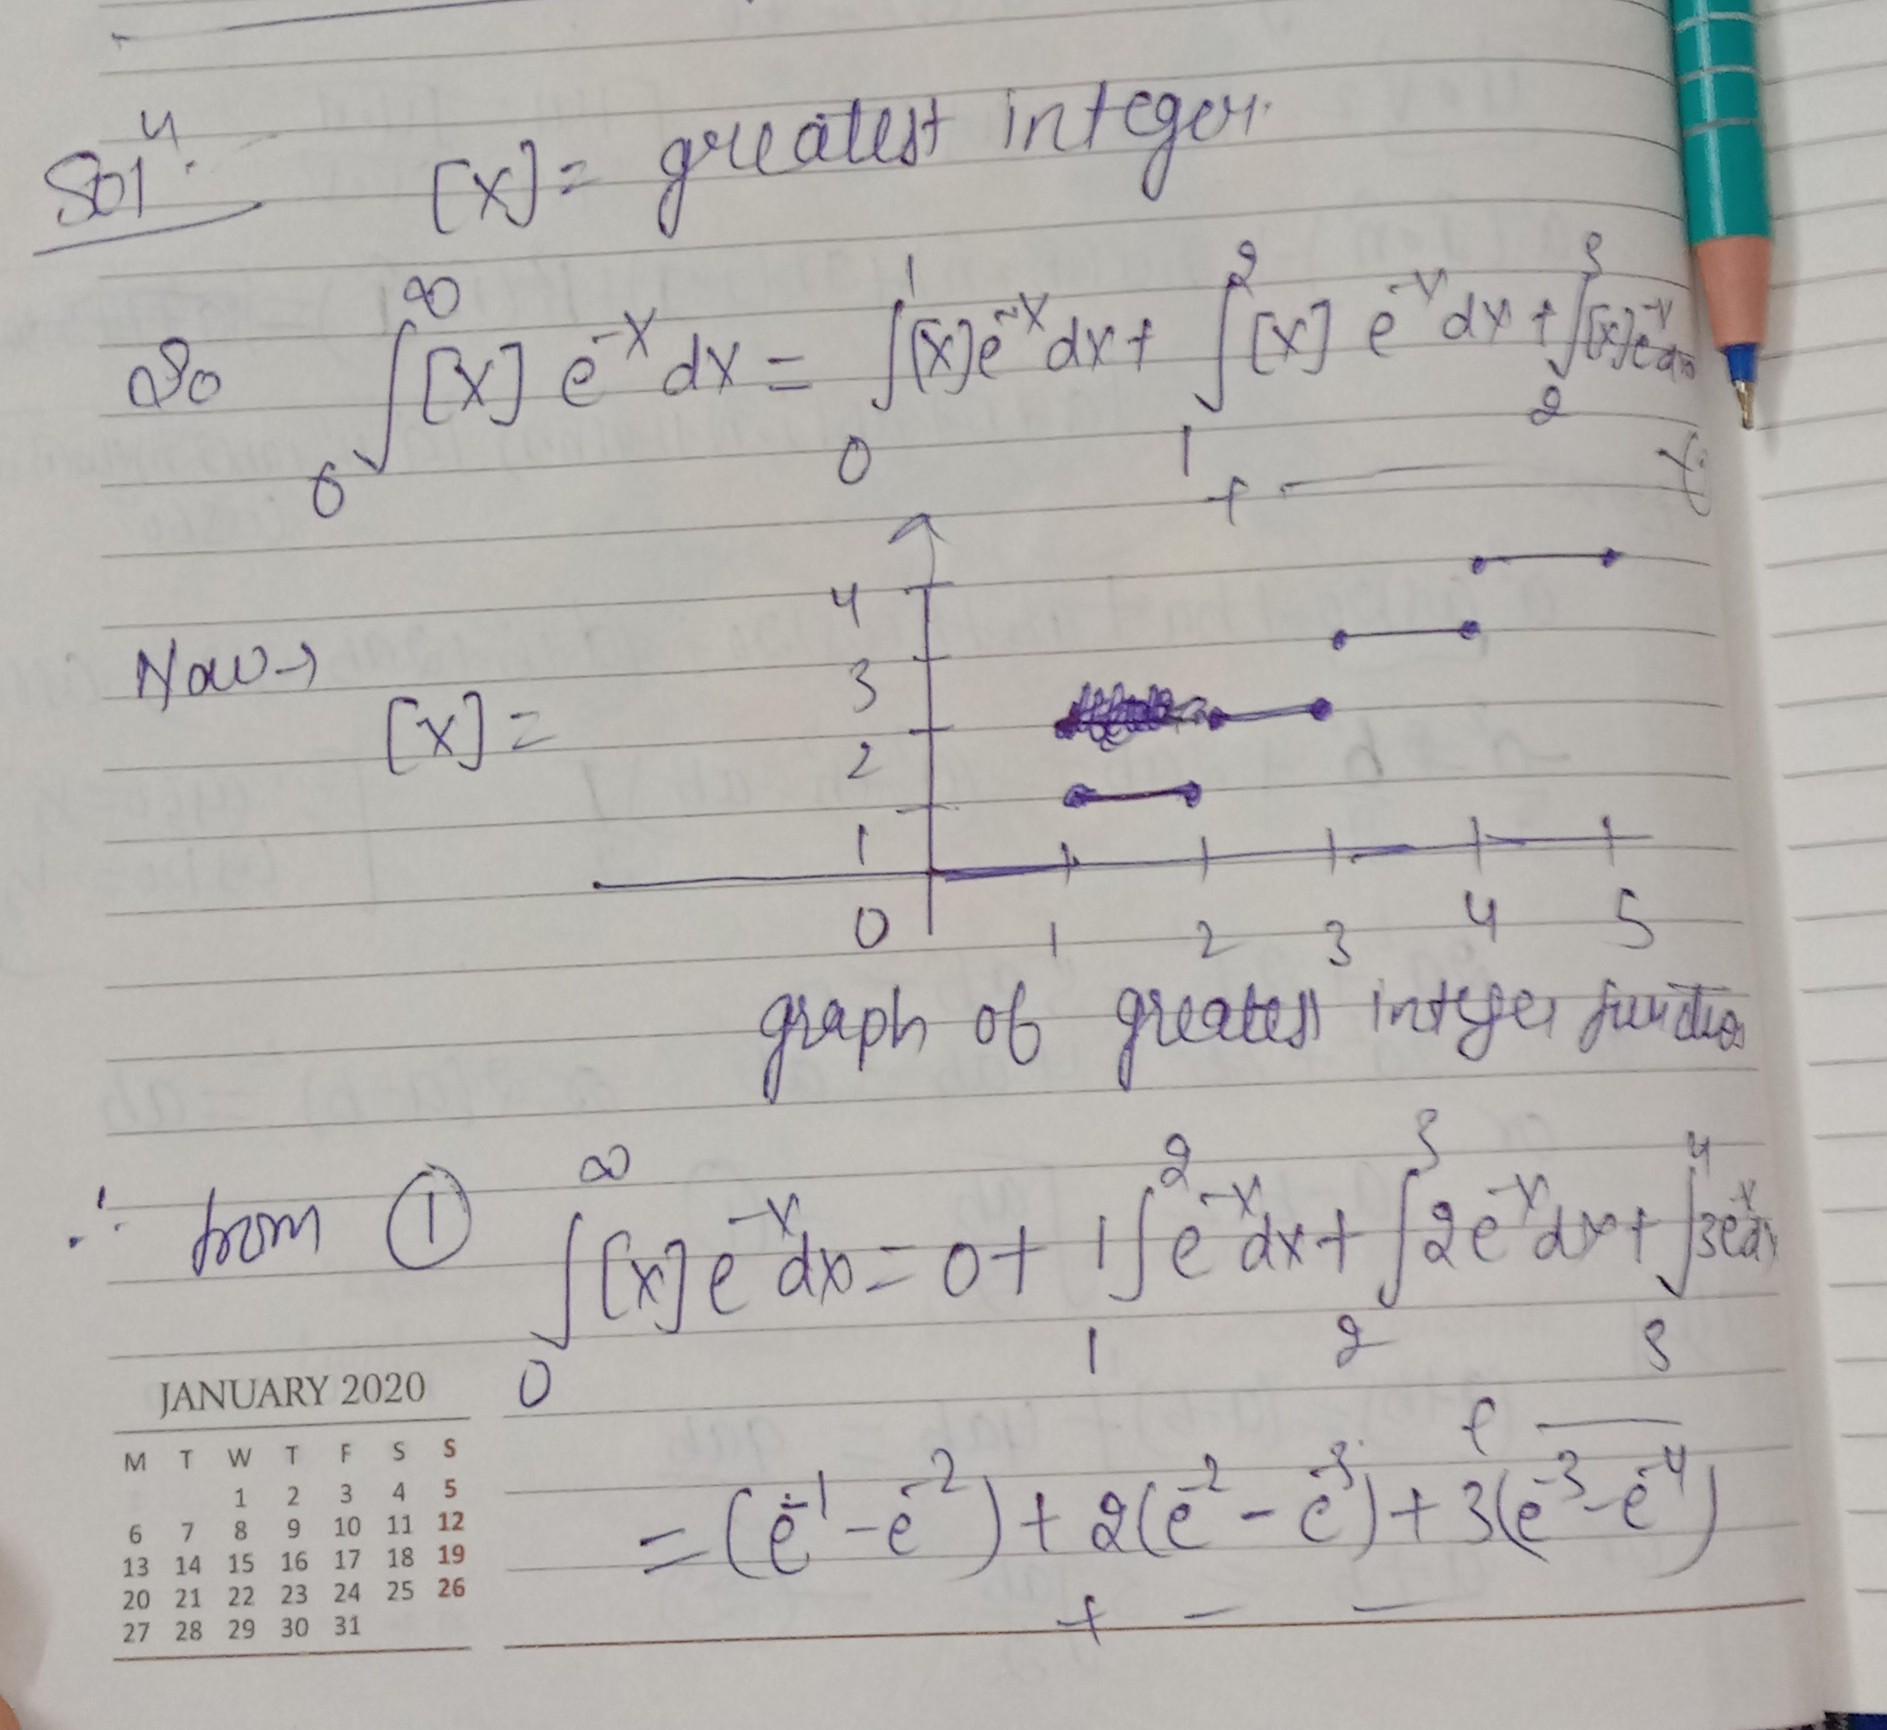 Solⁿ. [x] = greatest integer.
So ∫₀^∞ [x] e^-x dx = ∫₀^1 [x] e^-x dx + ∫₁^2 [x] e^-x dx + ∫₂^3 [x] e^-x dx
+ —
4
3
Now → [x] =
2
1
0 1 2 3 4 5
graph of greatest integer function
∴ from ① ∫₀^∞ [x] e^-x dx = 0 + 1∫₁^2 e^-x dx + ∫₂^3 2e^-x dx + ∫₃^4 3e^-x dx
+ —
= (e^-1 - e^-2) + 2(e^-2 - e^-3) + 3(e^-3 - e^-4)
+ — —
JANUARY 2020
M T W T F S S
1 2 3 4 5
6 7 8 9 10 11 12
13 14 15 16 17 18 19
20 21 22 23 24 25 26
27 28 29 30 31